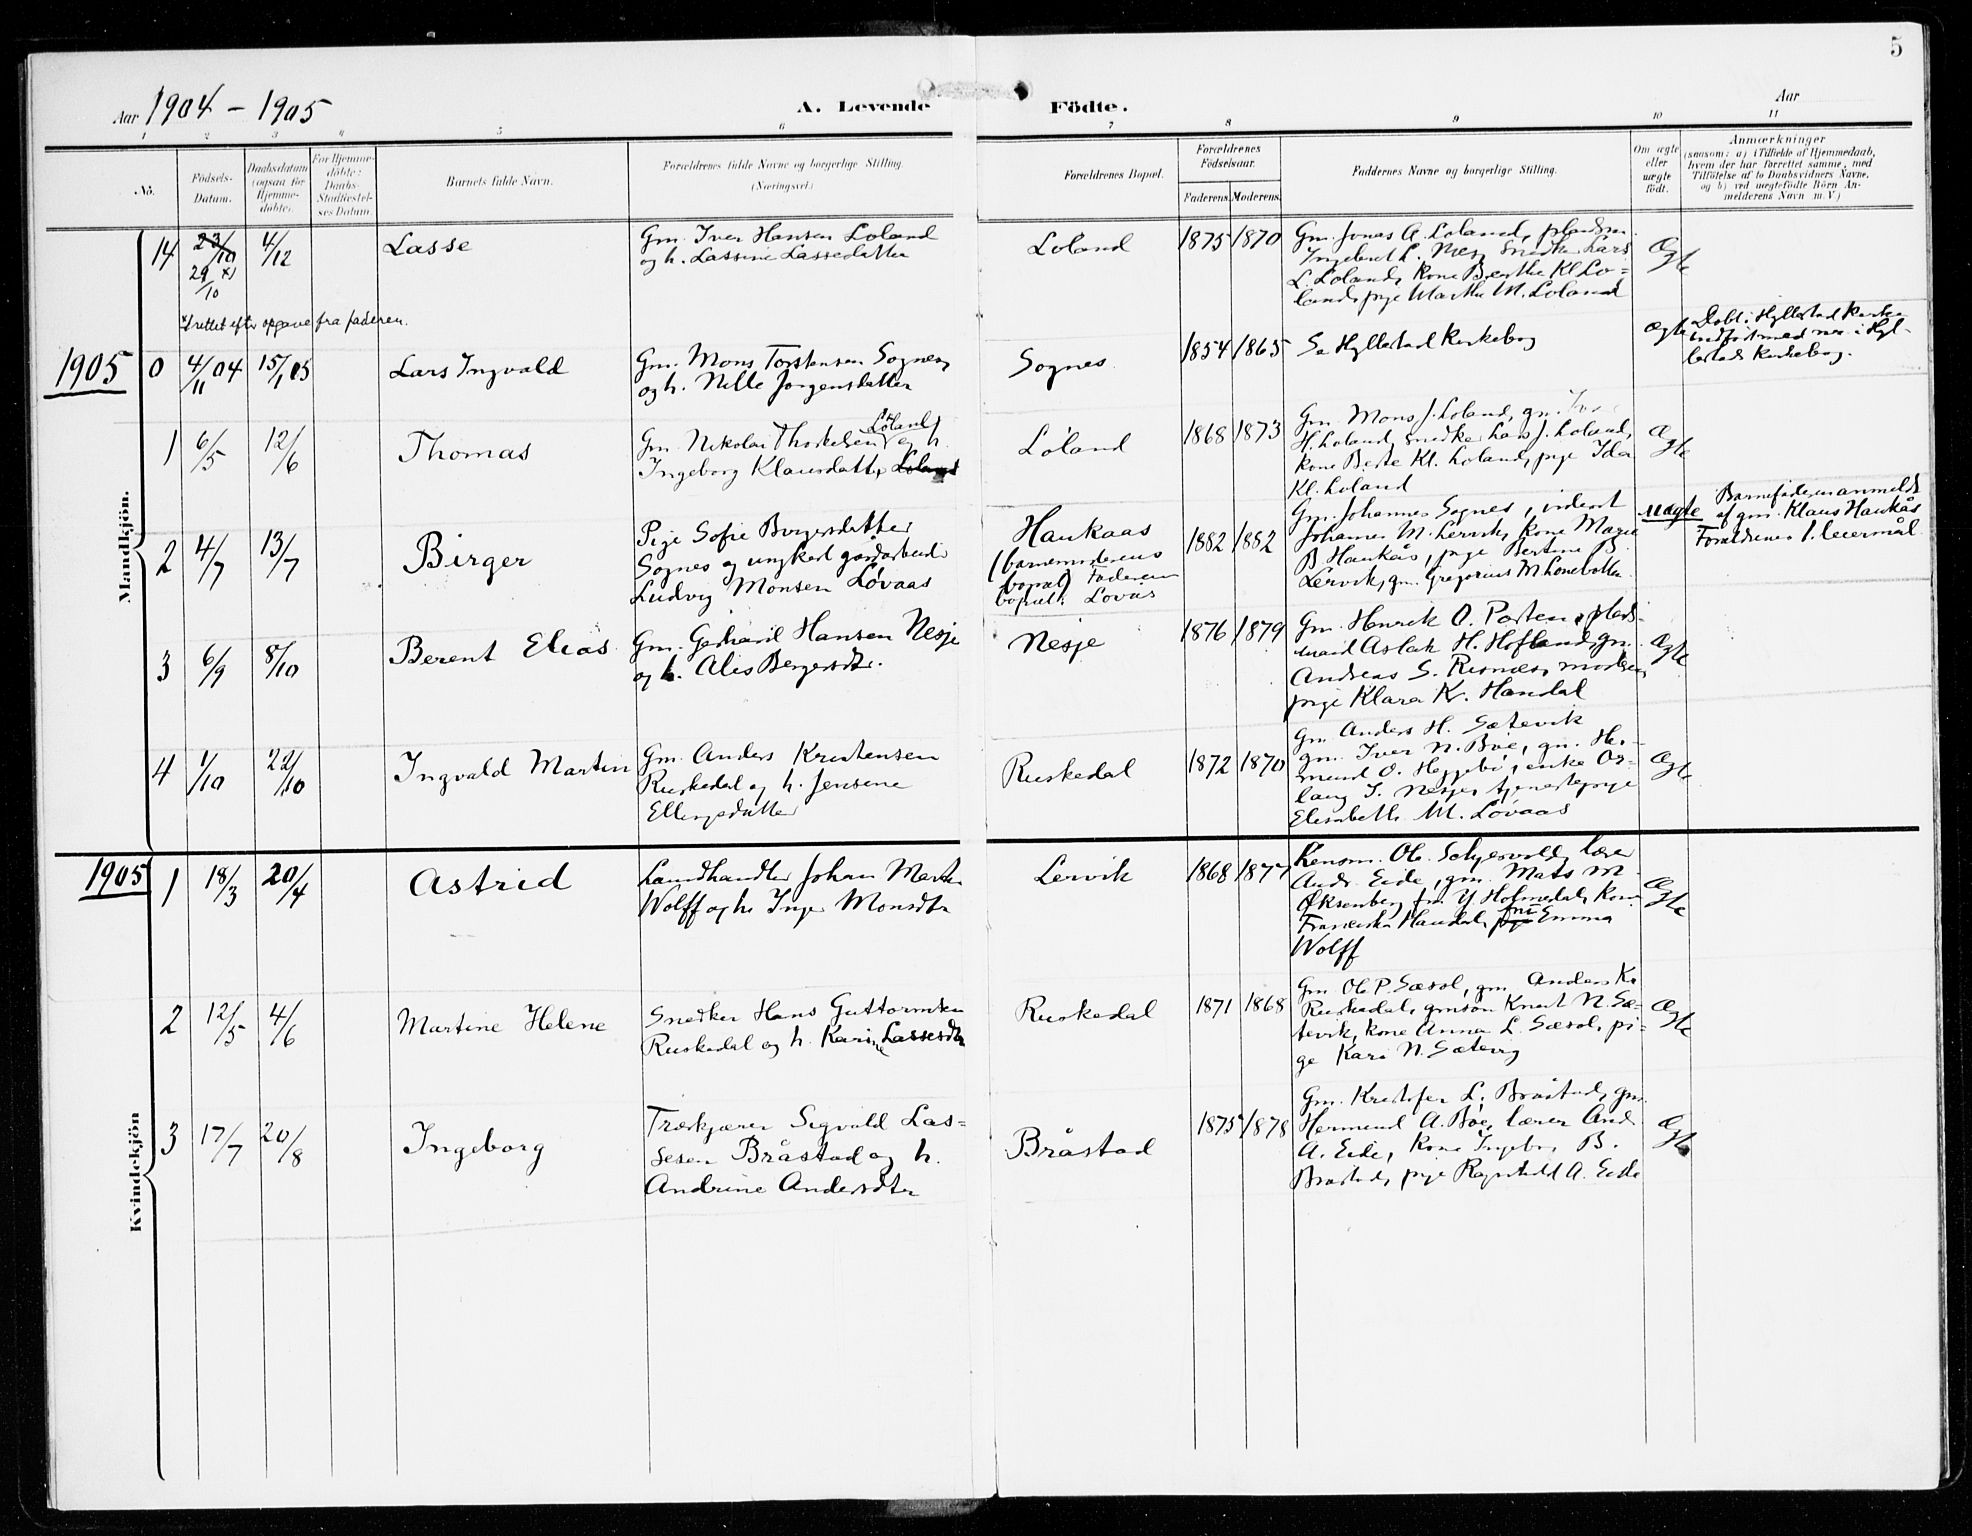 5
Aar 1904 - 1905
A. Levende Födte.
Aar
1 2 3 4 5 6 7 8 9 10 11
No.
Födsels-
Datum.
Daabsdatum
(ogsaa for
Hjemme-
döbte).
For Hjemme-
döbte:
Daabs-
Stadfæstel-
ses Datum.
Barnets fulde Navn.
Forældrenes fulde Navne og borgerlige Stilling.
(Næringsvei.)
Forældrenes Bopæl.
Forældrenes
Födselsaar.
Faderens. Moderens.
Faddernes Navne og borgerlige Stilling.
Om ægte
eller
uægte
födt.
Anmærkninger
(saasom: a) i Tilfælde af Hjemmedaab,
hvem der har forrettet samme, med
Tilföielse af to Daabsvidners Navne,
og b) ved uægtefödte Börn An-
melderens Navn m. V.)
Mandkjön.
14
23/10
29/10 x)
4/12
Lasse
Gm. Iver Hansen Loland
og h. Lassine Lassedatter
Loland
1875 1870
Gm. Jonas A. Loland, pladsm.
L. Loland, kone Berthe Kl. Lo-
land, pige Marthe M. Loland
Ægte
x) rettet efter opgave fra faderen.
1905
0
4/11 04
15/1 05
Lars Ingvald
Gm. Mons Torstensen Sognes
og h. Nille Jorgensdatter
Sognes
1854 1865
Se Hyllestad kirkebog
Ægte
Døbt i Hyllestad kirke
indført med no. i Hyl-
lestad kirkebog.
1
6/5
12/6
Thomas
Gm. Nikolai Thorkelsen Loland og h.
Ingeborg Klausdatter Loland
Løland
1868 1873
Gm. Mons J. Loland, gm. Iver
H. Loland, snedker Lars J. Loland,
kone Berte Kl. Loland, pige Ida
Kl. Loland
Ægte
2
4/7
13/7
Birger
Pige Sofie Birgersdatter
Sognes og ungkarl gaardarbeider
Ludvig Monsen Løvaas
Haukaas
(barnemoderens
bopæl) Faderens
bopæl: Lovås
1882 1882
Gm. Johannes Sognes, inderst
Johannes M. Lervik, kone Marie
B Haukås, pige Bertine B.
Lervik, gm. Gregorius M. Lonebotten
Uægte
Barnefaderen anmeldt
af gm. Klaus Haukås
Forældrenes 1. leiermål
3
6/9
8/10
Berent Elias
Gm. Gerhard Hansen Nesje
og h. Alis Bergersdtr.
Nesje
1876 1879
Gm. Henrik O. Porten, plads-
mand Aslak H. Hofland, gm.
Andreas S. Risnæs, moderen,
pige Klara K. Handal
Ægte
4
1/10
22/10
Ingvald Martin
Gm. Anders Kristensen
Ruskedal og h. Jensine
Ellingsdatter
Ruskedal
1872 1870
Gm. Anders H. Sætevik
gm. Iver N. Bøe, gm. Her-
mund O. Heggebø, enke Os-
laug I. Nesje, tjenestepige
Elisabeth M. Lovaas
Ægte
Kvindekjön
1905
1
18/3
20/4
Astrid
Landhandler Johan Martin
Wolff og h. Inger Monsdtr
Lervik
1868 1877
Lensm. Ole Solhjesvold, lærer
Andr. Eide, gm. Mats M.
Øksenberg fru Y. Holmedal, kone
Franciska Handal, pige frk. Emma
Wolff
Ægte
2
12/5
4/6
Martine Helene
Snedker Hans Guttormsen
Ruskedal og h. Karine Lassesdtr
Ruskedal
1871 1868
Gm. Ole P. Sæsol, gm. Anders K.
Ruskedal, gmsøn Knut N. Sæ-
tevik, kone Anna L. Sæsol, pi-
ge Kari N. Sætevig
Ægte
3
17/7
20/8
Ingeborg
Træskjærer Sigvald Las-
sesen Bråstad og h.
Andrine Andersdtr
Bråstad
1875 1878
Gm. Kristofer L. Bråstad, gm.
Hermund A. Bøe, lærer And.
A. Eide, kone Ingeborg B.
Bråstad, pige Ragnhild A. Eide
Ægte